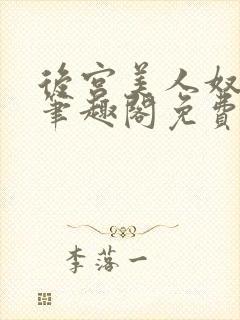 後宮美人奴
筆趣閣免費
李落一